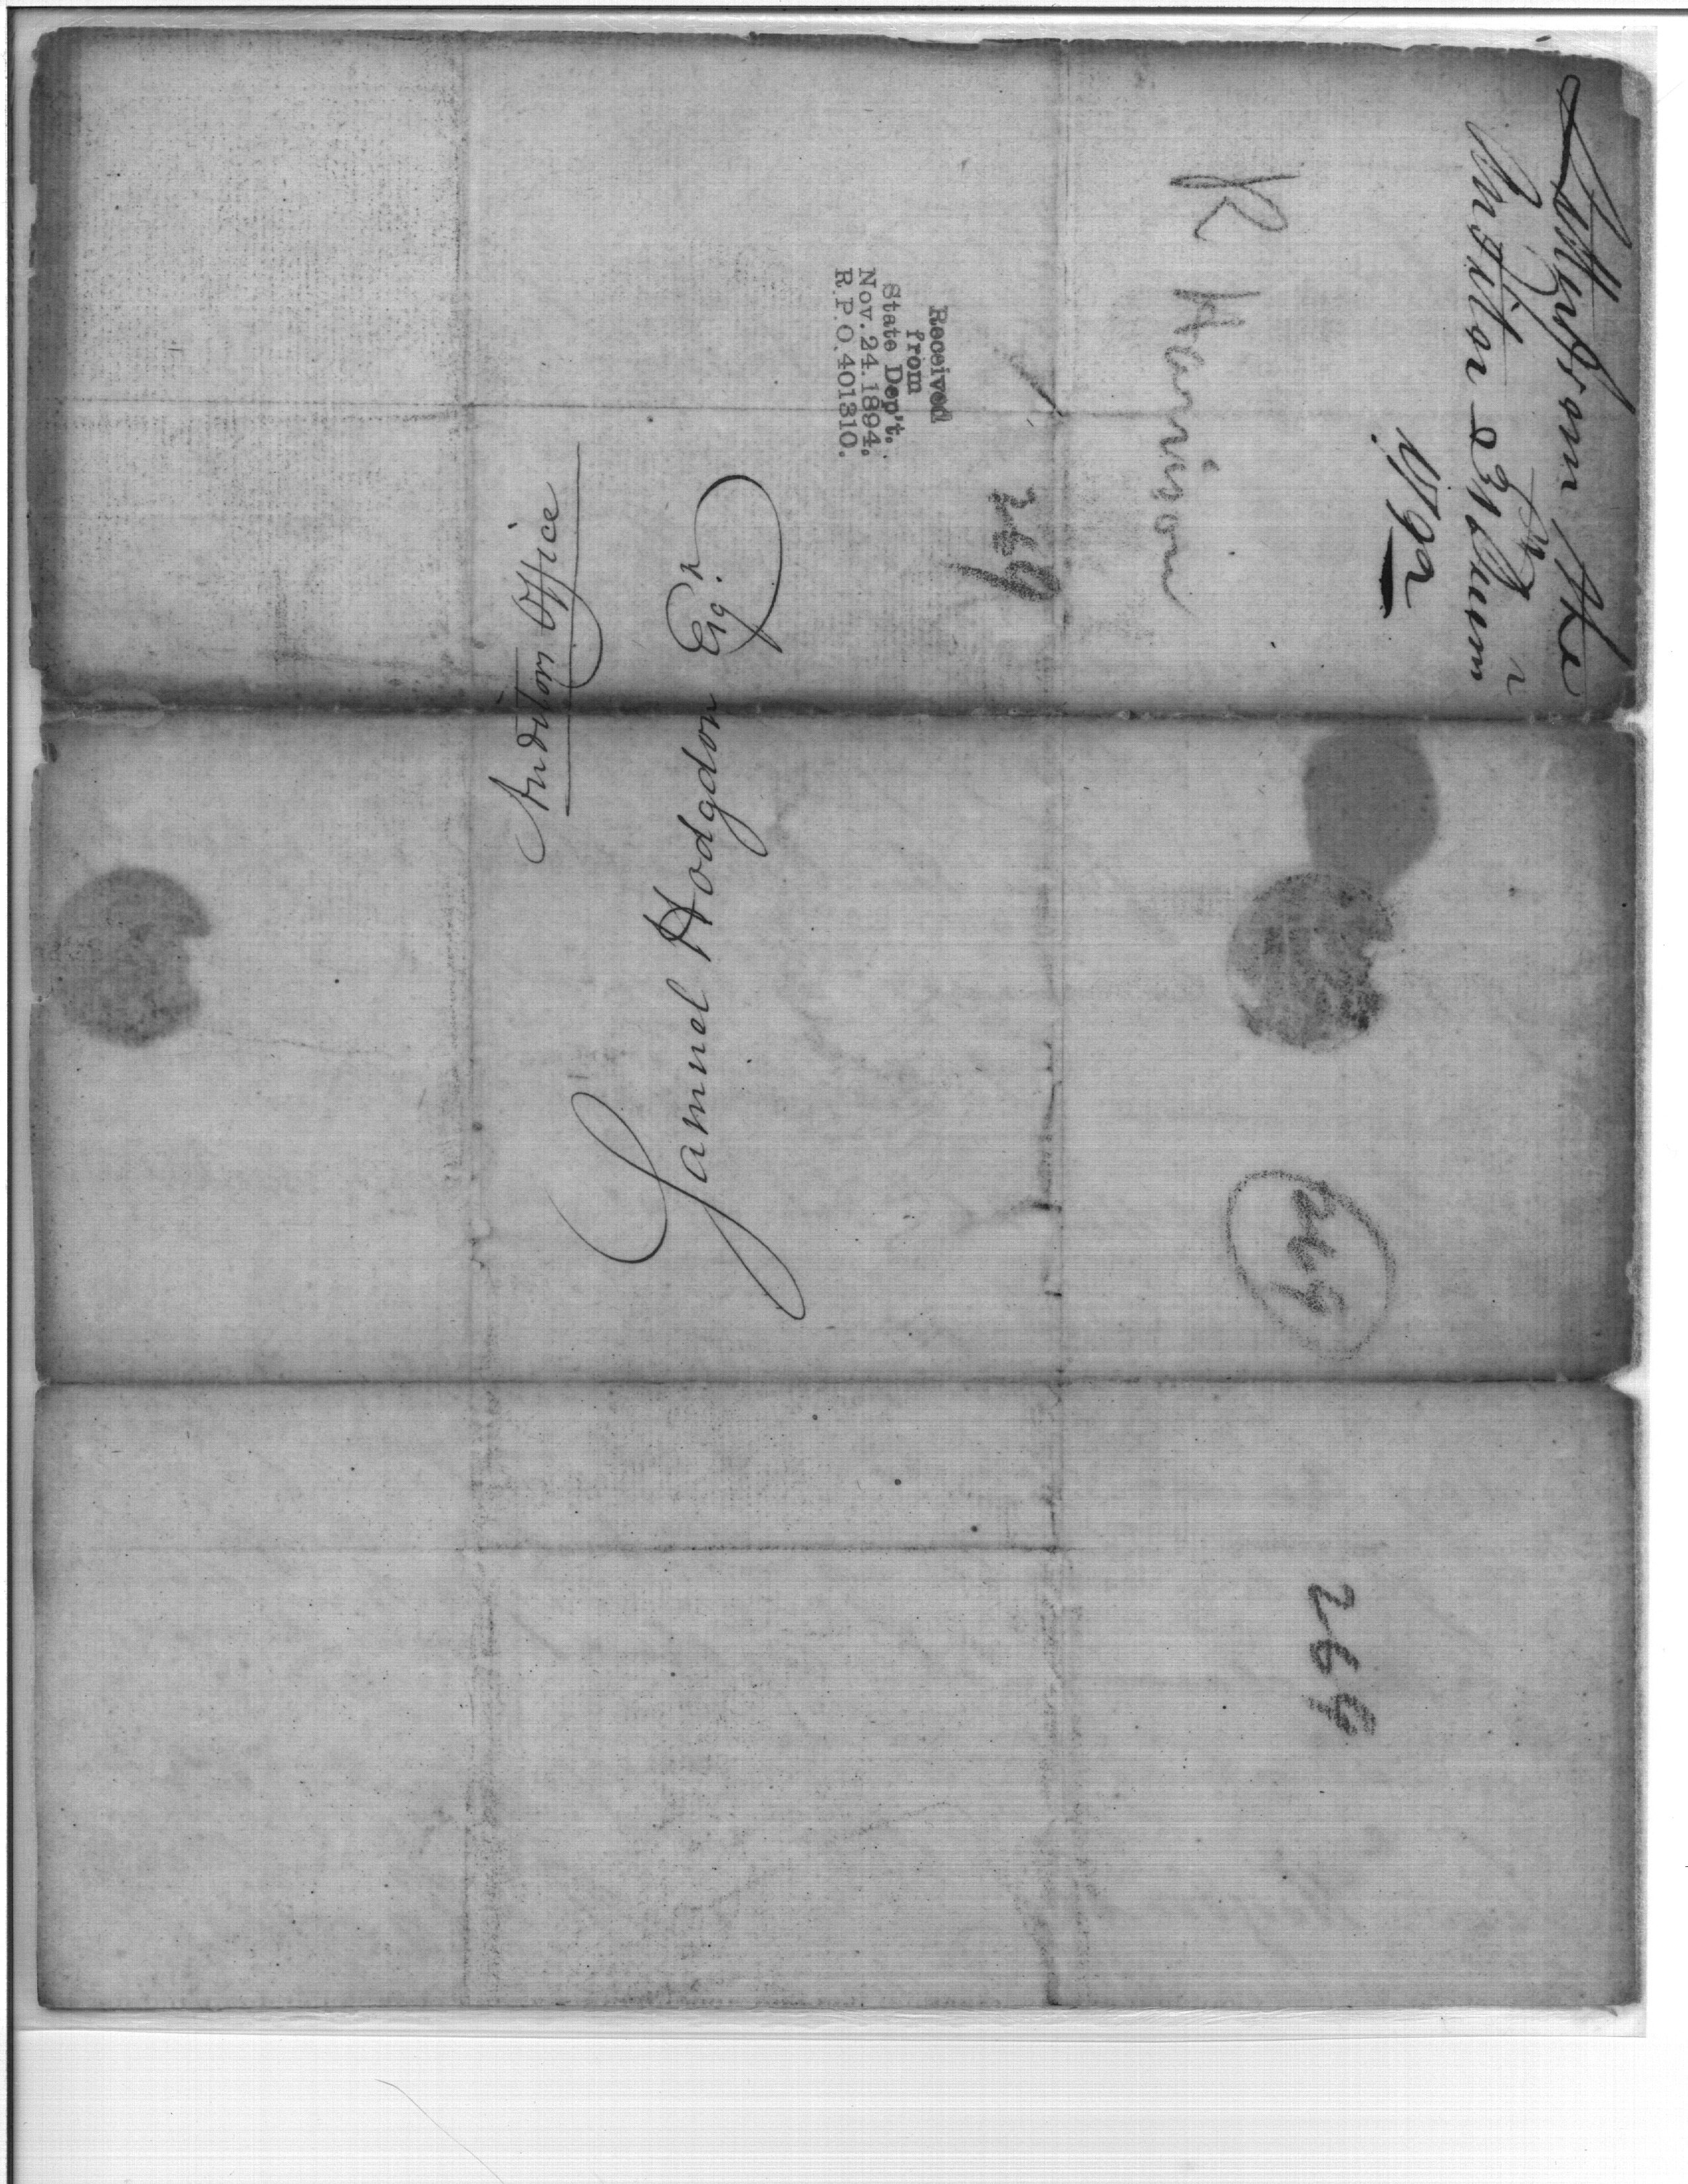 Letter from the
Auditor 23d Decem r
1792
R Harrison
269
Received
from
State Dep't.
Nov. 24. 1894.
R. P. O. 401310.
Samuel Hodgdon Esq.r
Auditors Office
269
269